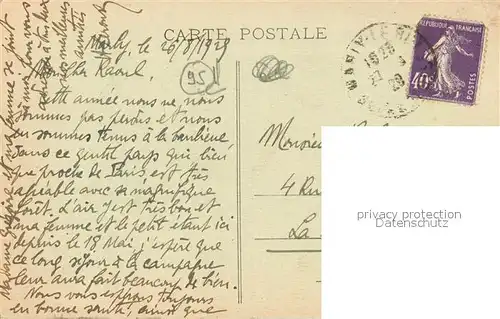 CARTE POSTALE
Marly, le 26/8/1929
Mon cher Raoul,
Cette année nous ne, nous
sommes pas perdus et nous
en sommes tenus à la banlieue.
Dans ce gentil pays qui bien
que proche de Paris est très
agréable avec sa magnifique
forêt. L'air y est très bon et
ma femme et le petit étant ici
depuis le 18 Mai, j'espère que
ce long séjour à la campagne
leur aura fait beaucoup de bien.
Nous vous espérons toujours
en bonne santé, ainsi que
Madame et ma femme se joint
à moi pour vous
nos meilleures
amitiés
95
MARLY-LE-ROI
RÉPUBLIQUE FRANÇAISE
40c
POSTES
Monsieur
4 Rue
La
privacy protection
(Datenschutz)